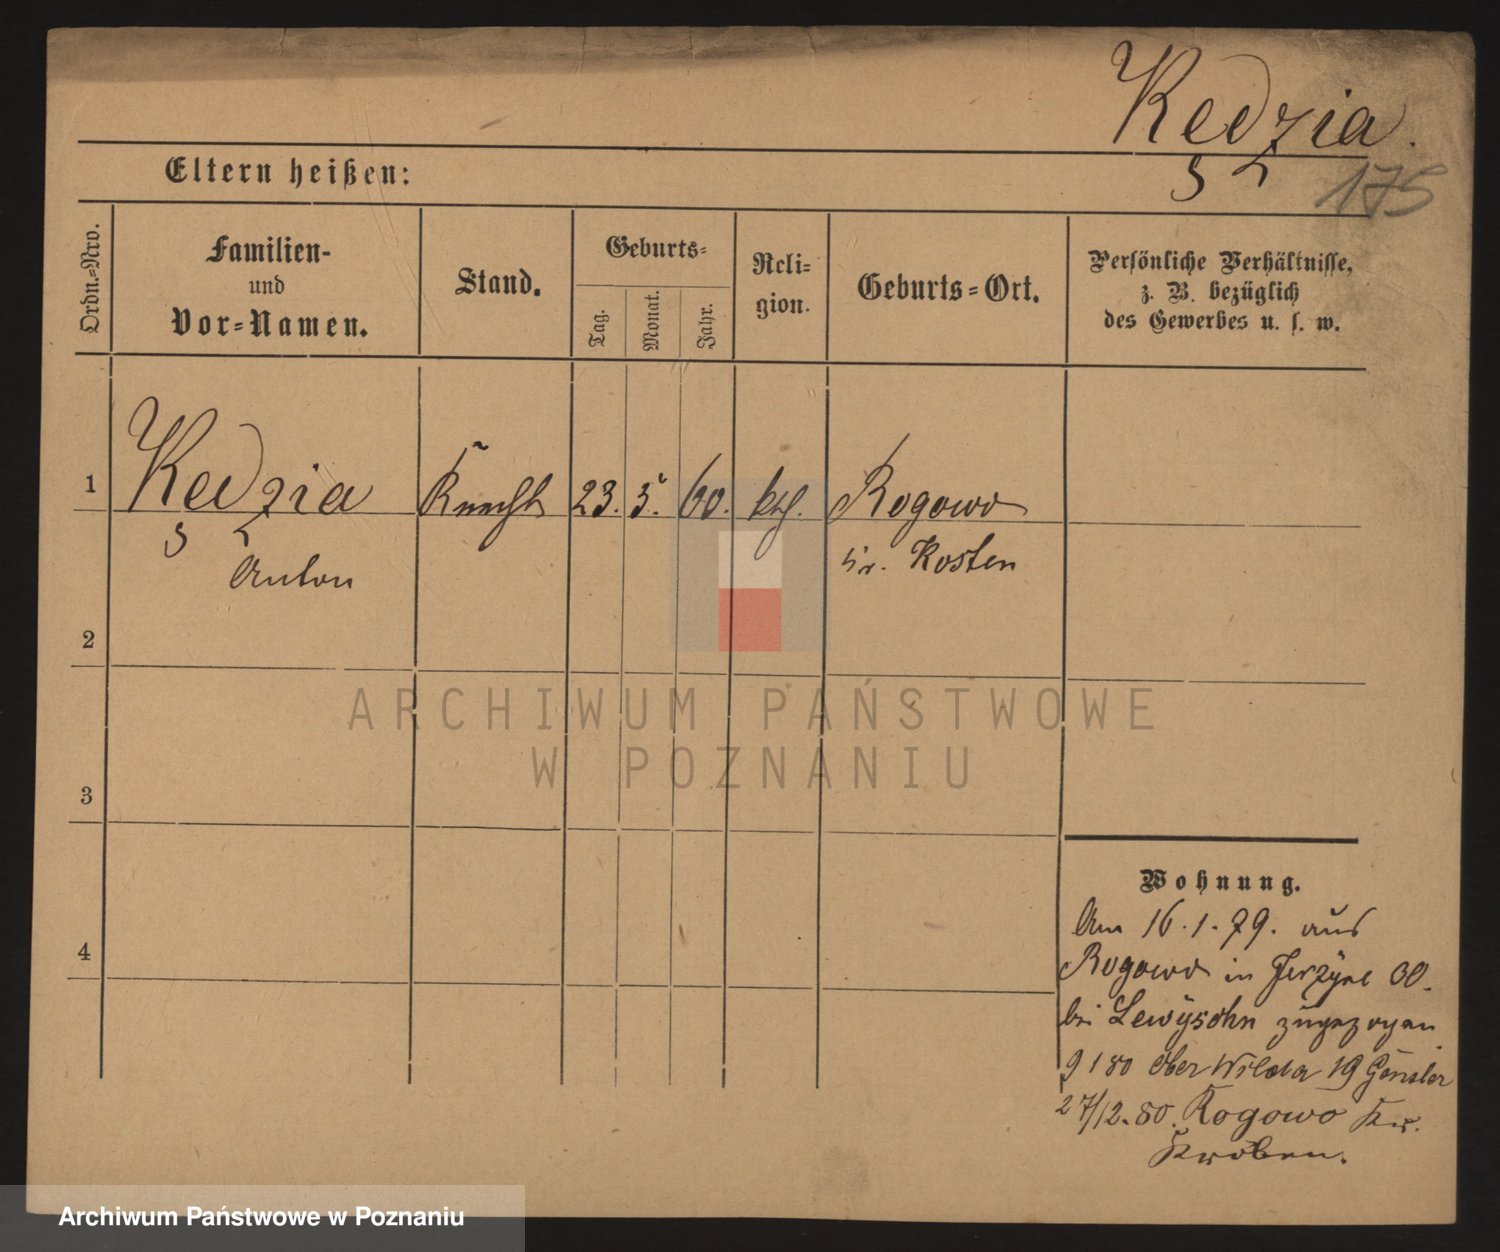 Kedzia.
175
Eltern heißen:
Ordn.=Nro.
Familien-
und
Vor=Namen.
Stand.
Geburts=
Tag.
Monat.
Jahr.
Reli=
gion.
Geburts=Ort.
Persönliche Verhältnisse,
z. B. bezüglich
des Gewerbes u. s. w.
1
Kedzia
Anton
Knecht
23.
5.
60.
kth.
Rogowo
Kr. Kosten
2
3
4
Wohnung.
Am 16.1.79. aus
Rogowo in Jerzÿce
bei Lewÿsohn zugezogen
9 1 80 Ober Wilda 19 Gensler
27/12.80. Rogowo Kr.
Kröben.
ARCHIWUM PAŃSTWOWE
W POZNANIU
Archiwum Państwowe w Poznaniu